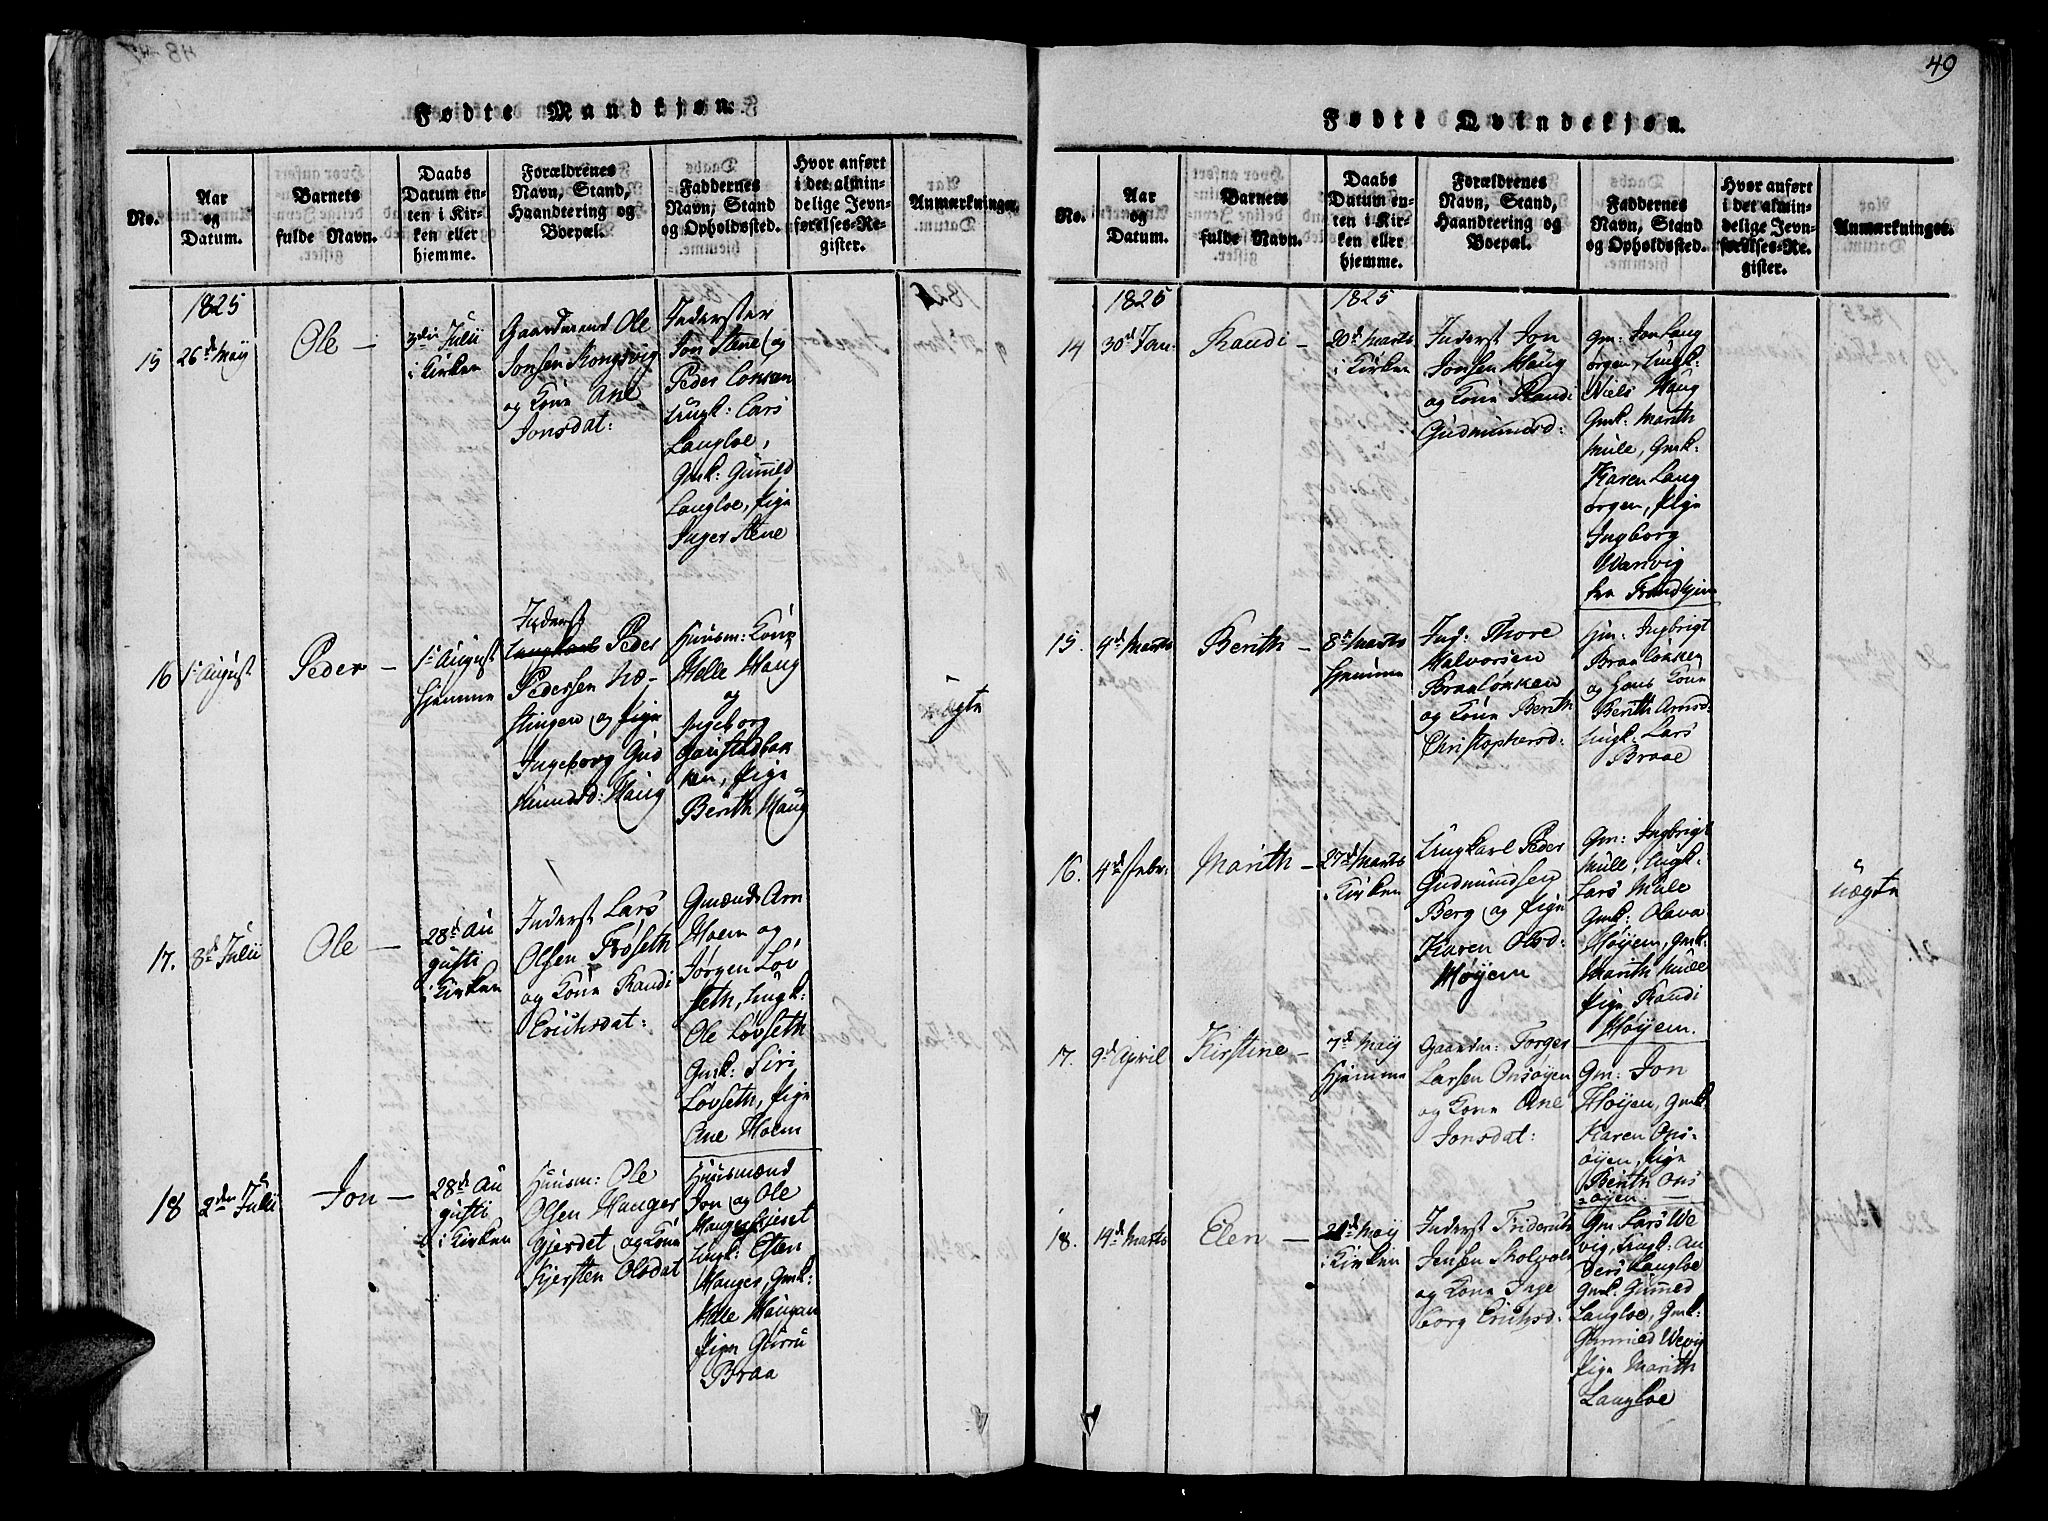 49
Fødte Mandkjøn.
No.
Aar
og
Datum.
Barnets
fulde Navn.
Daabs
Datum en-
ten i Kir-
ken eller
hjemme.
Forældrenes
Navn, Stand,
Haandtering og
Boepæl.
Faddernes
Navn, Stand
og Opholdssted.
Hvor anført
i det almin-
delige Jevn-
førelses-Re-
gister.
Anmærkninger.
1825
15
26d Maij
Ole —
3die Julii
i Kirken
Gaardmand Ole
Jonsen Kongsvig
og Kone Ane
Jonsdat:
Inderster
Jon Stene og
Peder Loxran
Ungk: Lars
Langloe,
Gmk: Gunild
Langloe, Pige
Inger Stene
16
1ste August
Peder —
1ste August
hjemme
Inderst
Ungkarl Peder
Pedersen Næ-
stingen og Pige
Ingeborg Gud
mundsd: Haug
Huusm: Kone
Helle Haug
og
Ingeborg
Garistadbak
ken, Pige
Berith Haug
uægte
17.
8de Julii
Ole —
28de Au
gusti
i Kirken
Inderst Lars
Olsen Frøseth
og Kone Randi
Erichsdat:
Gmænd Arn
Moem og
Jørgen Løv
seth, Ungk:
Ole Løvseth
Gmk: Siri
Løvseth, Pige
Ane Moem
18
2den Julii
Jon —
28de Au
gusti
i Kirken
Huusm: Ole
Olsen Hauger
Gjerdet og Kone
Kjersten Olsdat
Huusmænd
Jon og Ole
Haugerkjeret
Ungk: Esten
Hauger, Gmk:
Helle Haugan
Pige Gurru
Braa
Fødte Qvindekjøn.
No.
Aar
og
Datum.
Barnets
fulde Navn.
Daabs
Datum en-
ten i Kir-
ken eller
hjemme.
Forældrenes
Navn, Stand,
Haandtering og
Boepæl.
Faddernes
Navn, Stand
og Opholdssted.
Hvor anført
i det almin-
delige Jevn-
førelses-Re-
gister.
Anmærkninger.
1825
1825
14
30d Jan.
Randi —
20d Marts
i Kirken
Inderst Jon
Jonsen Haug
og Kone Randi
Gudmunsd:
Gm: Jon Lang
ørgen, Ungk:
Niels Haug
Gmk: Marith
Mule, Gmk:
Karen Lang
ørgen, Pige
Ingborg
Wanvig
fra Trondhjem
15.
4d Marts
Berith —
8d Marts
hjemme
Ind: Thore
Halvorsen
Braaløkken
og Kone Berith
Christophersd:
Hm: Ingbrigt
Braaløkken
og hans Kone
Berith Arnsd:
Ungk: Lars
Braae
16.
4d Febr:
Marith —
27d Marts
i Kirken
Ungkarl Peder
Gudmundsen
Berg og Pige
Karen Olsd:
Høyem
Gm: Ingbrigt
Mule, Ungk:
Lars Mule
Gmk: Olava
Høyem, Gmk:
Marith Mule
Pige Randi
Høyem.
uægte
17.
9d April
Kirstine —
7d Maij
hjemme
Gaardm: Torger
Larsen Onsøyen
og Kone Ane
Jonsdat:
Gm: Jon
Høyen, Gmk:
Karen Ons-
øyen, Pige
Berith Ons
øyen. —
18.
14d Marts
Elen —
Maij
i Kirken
Inderst Friderich
Jensen Skolvold
og Kone Inge
borg Erichsd:
Gm: Lars We
vig, Ungk: An
ders Langloe
Gmk: Gunned
Langloe, Gmk:
Gunnied Wevig
Pige Marith
Langloe